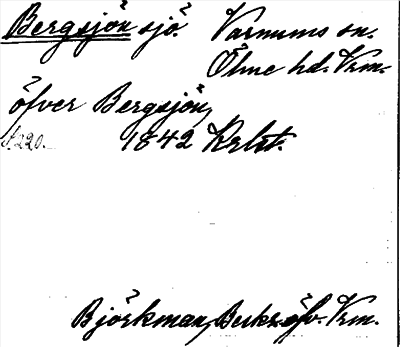 Bergsjön sjö Varnums sn.
Ölme hd. Vrm.
öfver Bergsjön,
s. 220. 1842 Krlst.
Björkman, Beskr. öfv. Vrm.